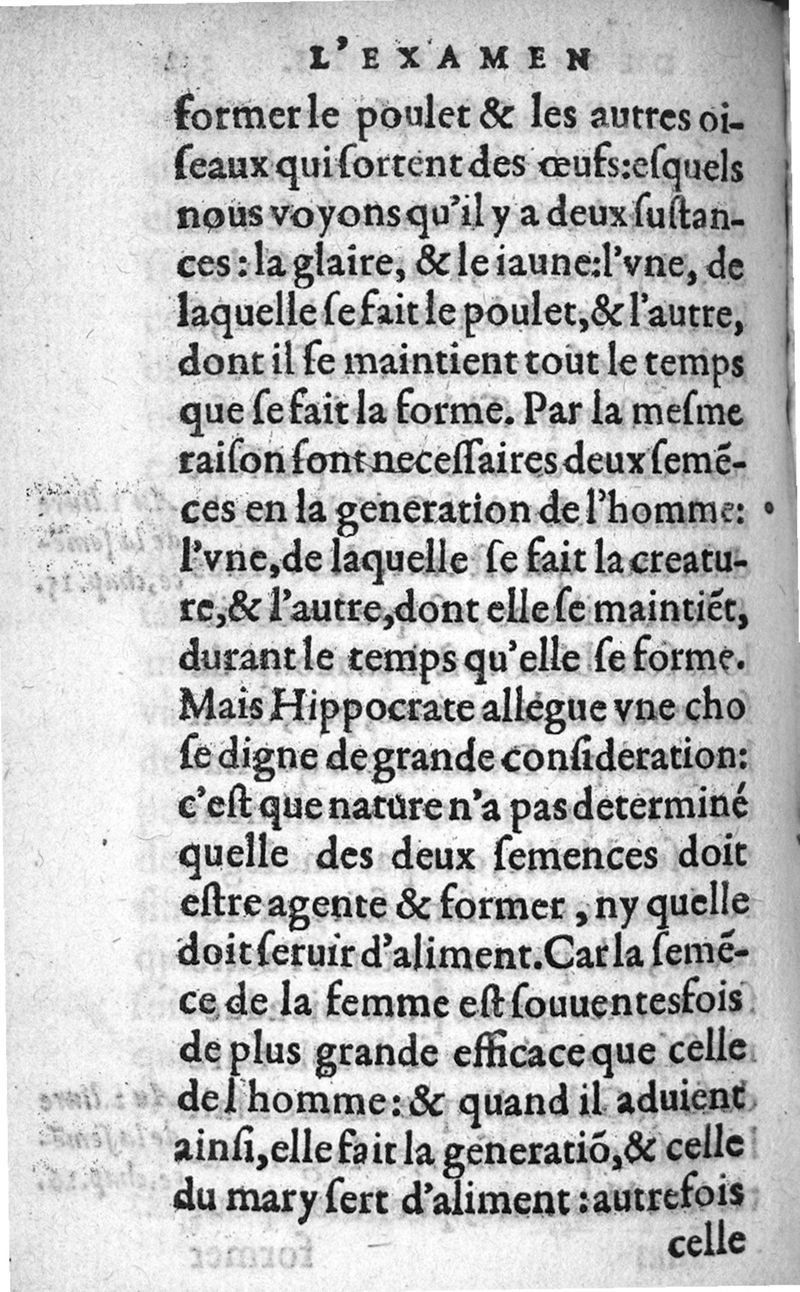 L'EXAMEN
former le poulet & les autres oi-
ſeaux qui ſortent des œufs: eſquels
nous voyons qu'il y a deux ſuſtan-
ces: la glaire, & le iaune: l'vne, de
laquelle ſe fait le poulet, & l'autre,
dont il ſe maintient tout le temps
que ſe fait la forme. Par la meſme
raiſon ſont neceſſaires deux ſemẽ-
ces en la generation de l'homme:
l'vne, de laquelle ſe fait la creatu-
re, & l'autre, dont elle ſe maintiẽt,
durant le temps qu'elle ſe forme.
Mais Hippocrate allegue vne cho
ſe digne de grande conſideration:
c'eſt que nature n'a pas determiné
quelle des deux ſemences doit
eſtre agente & former, ny quelle
doit ſeruir d'aliment. Car la ſemẽ-
ce de la femme eſt ſouuentesfois
de plus grande efficace que celle
de l homme: & quand il aduient
ainſi, elle fait la generatiõ, & celle
du mary ſert d'aliment: autrefois
celle